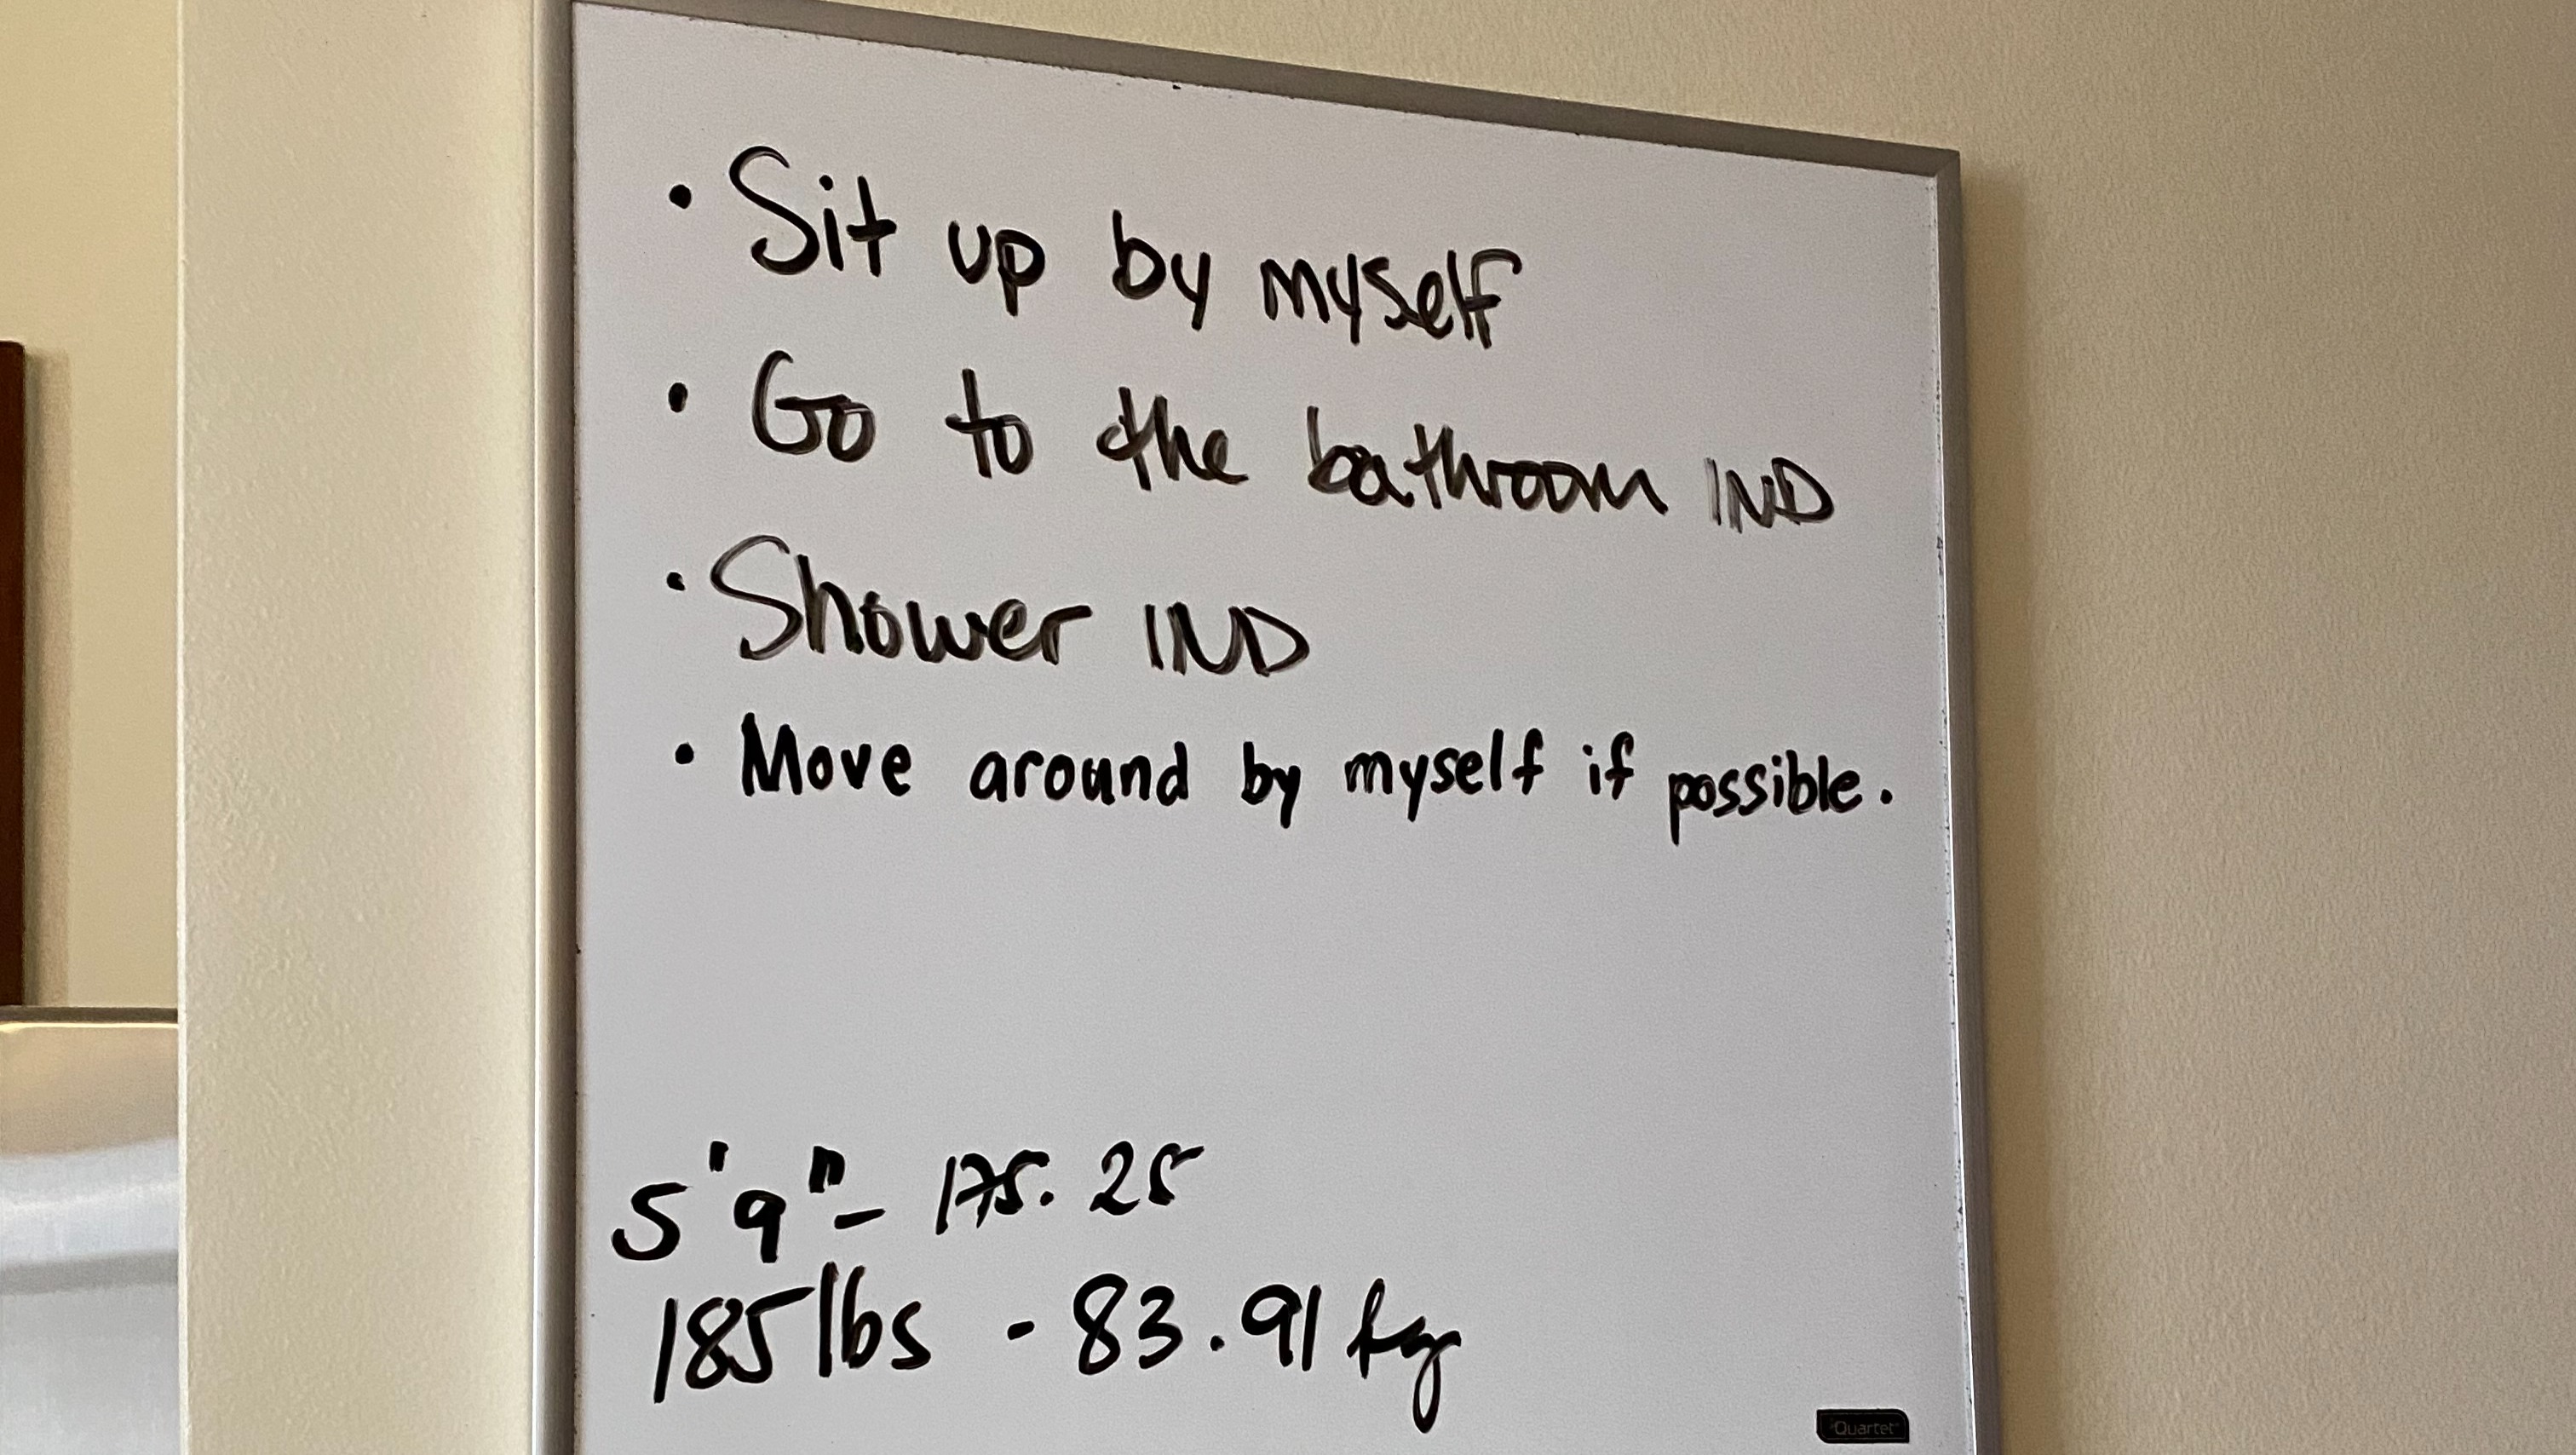 • Sit up by myself
• Go to the bathroom IND
• Shower IND
• Move around by myself if possible.
5'9" - 175.25
185 lbs - 83.91 kg
Quartet